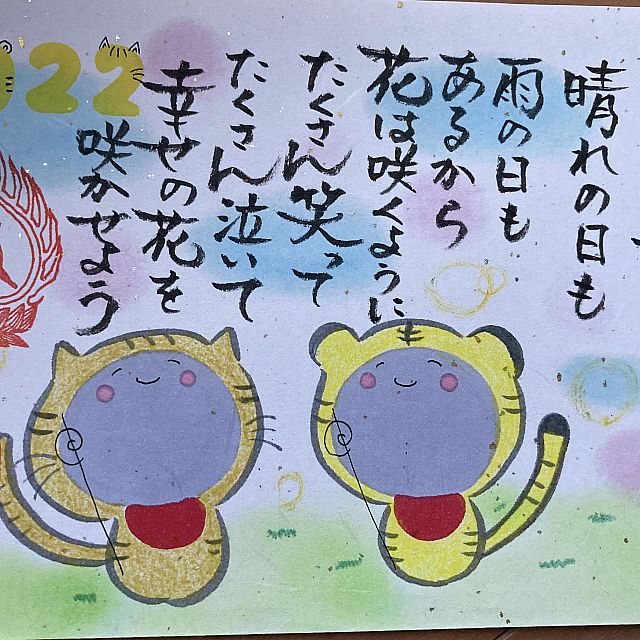 晴れの日も
雨の日も
あるから
花は咲くように
たくさん笑って
たくさん泣いて
幸せの花を
咲かせよう
022